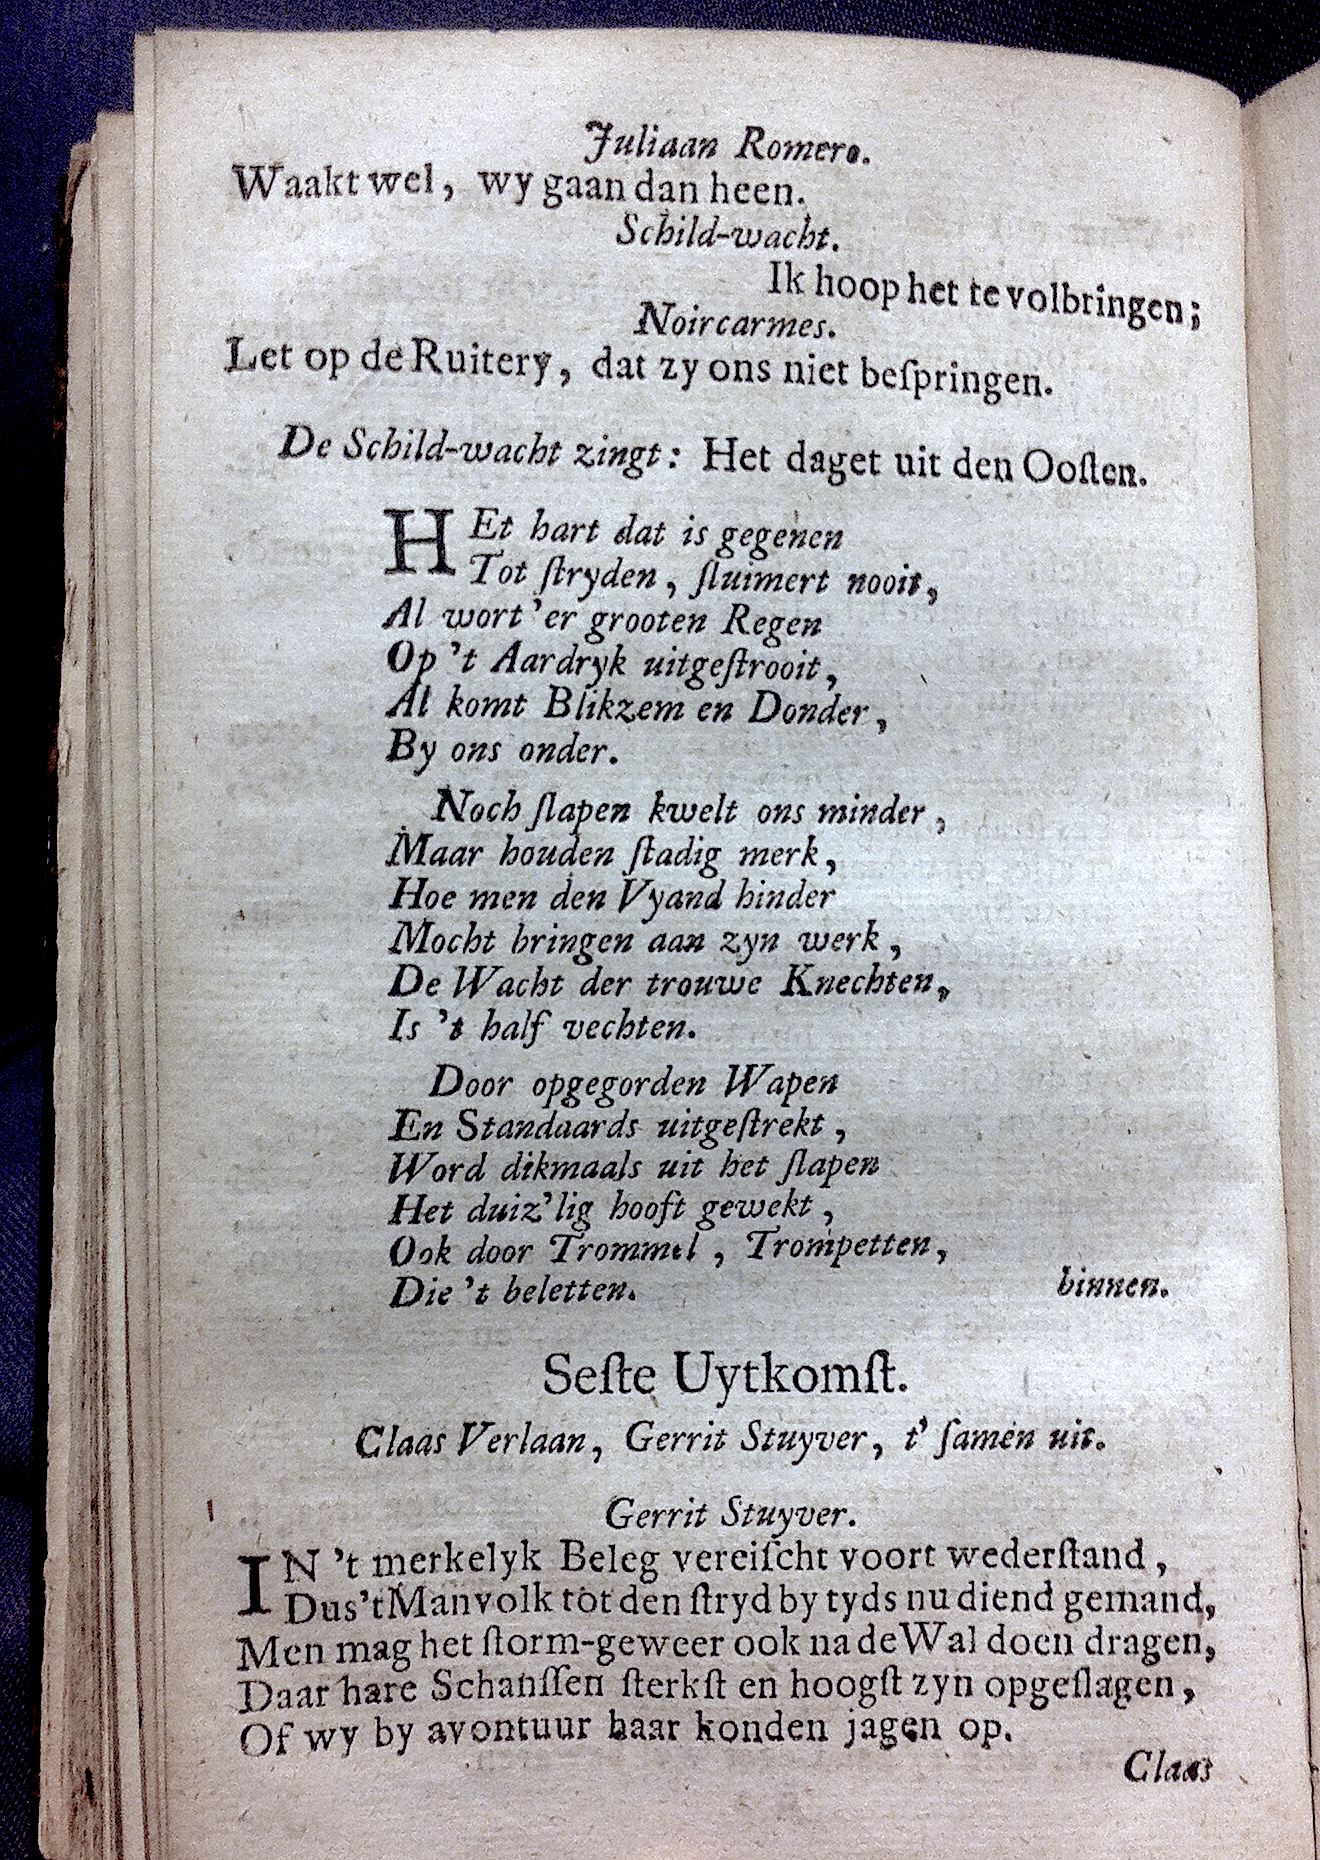 Juliaan Romero.
Waakt wel, wy gaan dan heen.
Schild-wacht.
Ik hoop het te volbringen;
Noircarmes.
Let op de Ruitery, dat zy ons niet beſpringen.
De Schild-wacht zingt: Het daget uit den Ooſten.
HEt hart dat is gegenen
Tot ſtryden, ſluimert nooit,
Al wort 'er grooten Regen
Op 't Aardryk uitgeſtrooit,
Al komt Blikzem en Donder,
By ons onder.
Noch ſlapen kwelt ons minder,
Maar houden ſtadig merk,
Hoe men den Vyand hinder
Mocht bringen aan zyn werk,
De Wacht der trouwe Knechten,
Is 't half vechten.
Door opgegorden Wapen
En Standaards uitgeſtrekt,
Word dikmaals uit het ſlapen
Het duiz'lig hooft gewekt,
Ook door Trommel, Trompetten,
Die 't beletten.
binnen.
Seſte Uytkomſt.
Claas Verlaan, Gerrit Stuyver, t' ſamen uit.
Gerrit Stuyver.
IN 't merkelyk Beleg vereiſcht voort wederſtand,
Dus 't Manvolk tot den ſtryd by tyds nu diend gemand,
Men mag het ſtorm-geweer ook na de Wal doen dragen,
Daar hare Schanſſen ſterkſt en hoogſt zyn opgeſlagen,
Of wy by avontuur haar konden jagen op.
Claas